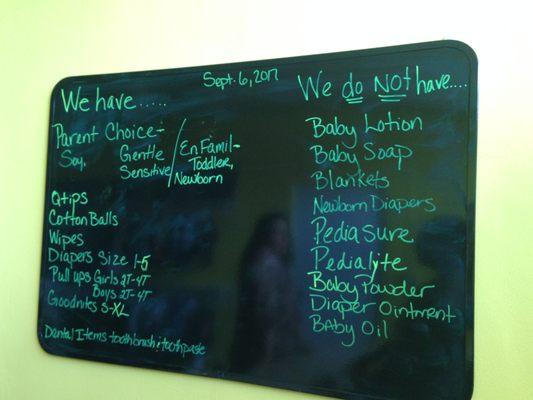 Sept. 6, 2017
We have.....
Parent Choice-
Soy, Gentle
Sensitive
En Famil-
Toddler,
Newborn
Qtips
Cotton Balls
Wipes
Diapers Size 1-5
Pull ups Girls 2T-4T
Boys 2T-4T
Goodnites S-XL
Dental Items-toothbrush & toothpaste
We do NOT have....
Baby Lotion
Baby Soap
Blankets
Newborn Diapers
Pediasure
Pedialyte
Baby Powder
Diaper Ointment
Baby Oil